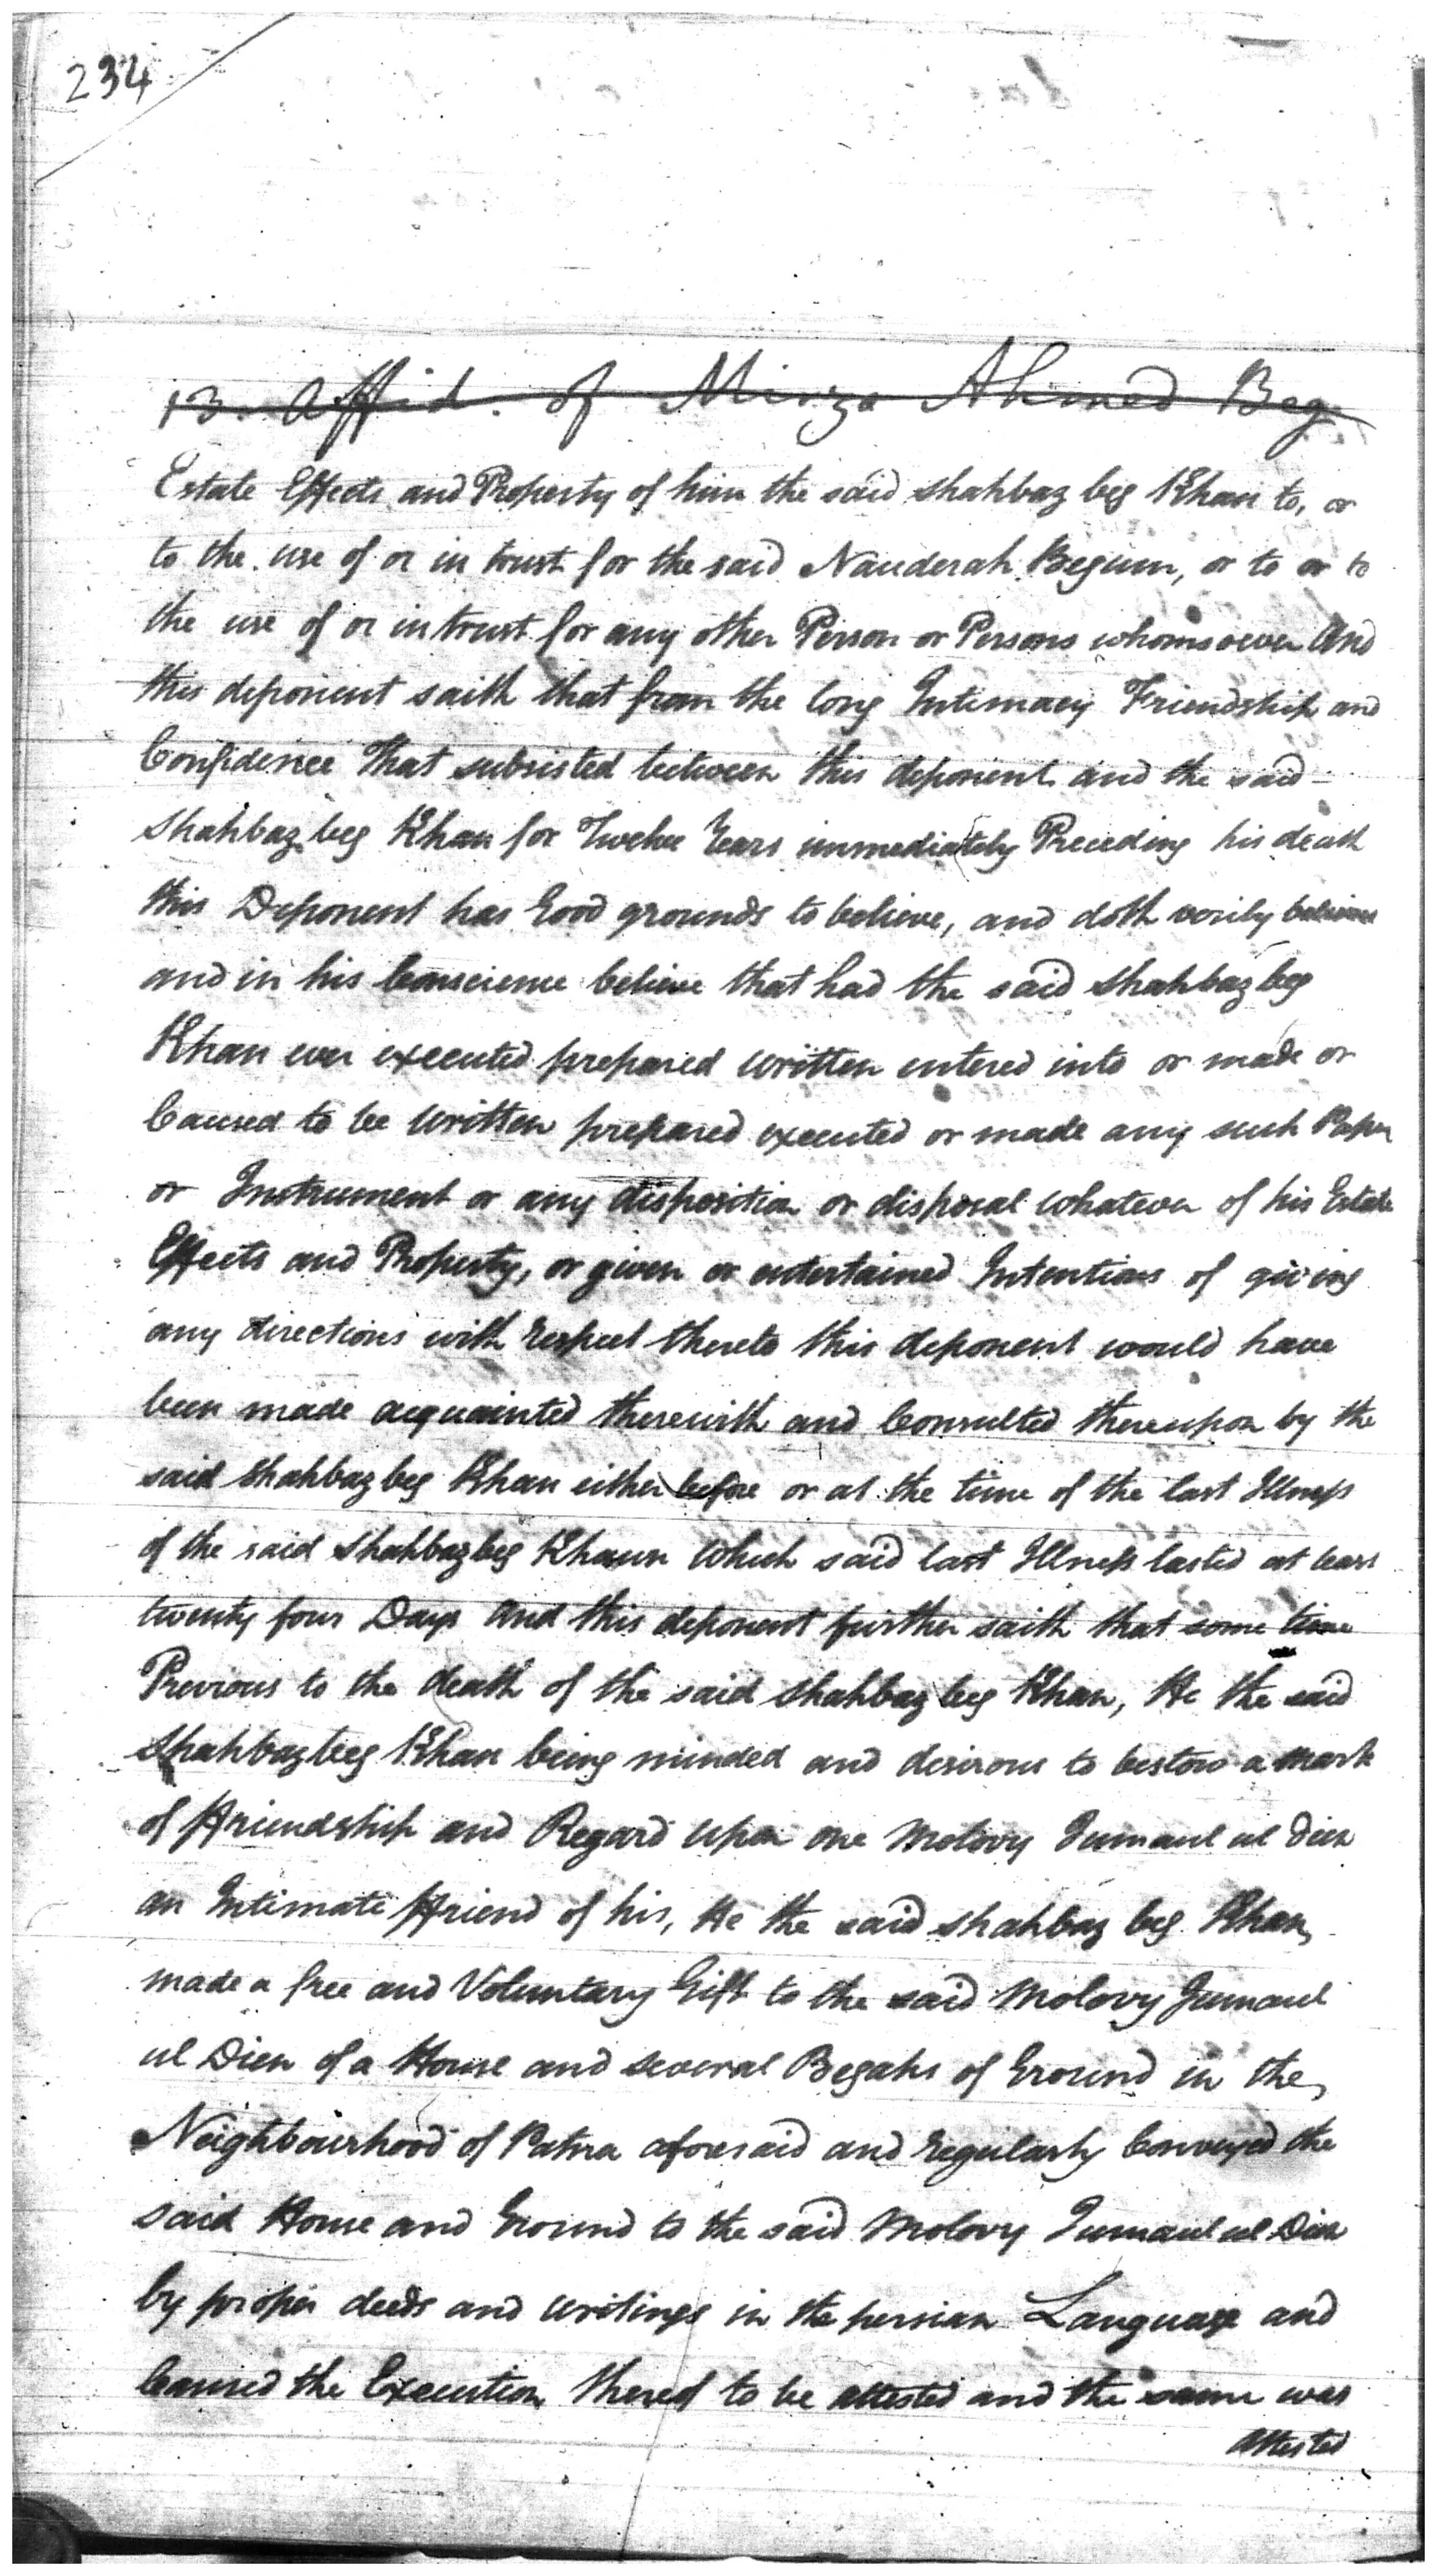 234
13. Affid. of Mirza Ahmed Beg
Estate Effects and Property of him the said Shahbaz beg Khan to, or
to the use of or in trust for the said Nauderah Begum, or to or to
the use of or in trust for any other Person or Persons whomsoever And
this deponent saith that from the long Intimacy Friendship and
Confidence That subsisted between this deponent and the said
Shahbaz beg Khan for Twelve Years immediately Preceding his death
this Deponent has Good grounds to believe, and doth verily believe
and in his Conscience believe that had the said Shahbaz beg
Khan ever executed prepared written entered into or made or
Caused to be written prepared executed or made any such Paper
or Instrument or any disposition or disposal whatever of his Estate
Effects and Property, or given or entertained Intentions of giving
any directions with respect thereto this deponent would have
been made acquainted therewith and Consulted thereupon by the
said Shahbaz beg Khan either before or at the time of the last Illness
of the said Shahbaz beg Khaun Which said last Illness lasted at least
twenty four Days And this deponent further saith that some time
Previous to the death of the said Shahbaz beg Khan, He the said
Shahbaz beg Khan being minded and desirous to bestow a Mark
of Friendship and Regard upon one Molovy Jumaul ul Dien
an Intimate Friend of his, He the said Shahbaz beg Khan,
made a free and Voluntary Gift to the said Molovy Jumaul
ul Dien of a House and several Begahs of Ground in the
Neighbourhood of Patna aforesaid and regularly Conveyed the
said House and Ground to the said Molovy Jumaul ul Dien
by proper deeds and writings in the persian Language and
Caused the Execution thereof to be attested and the same was
attested